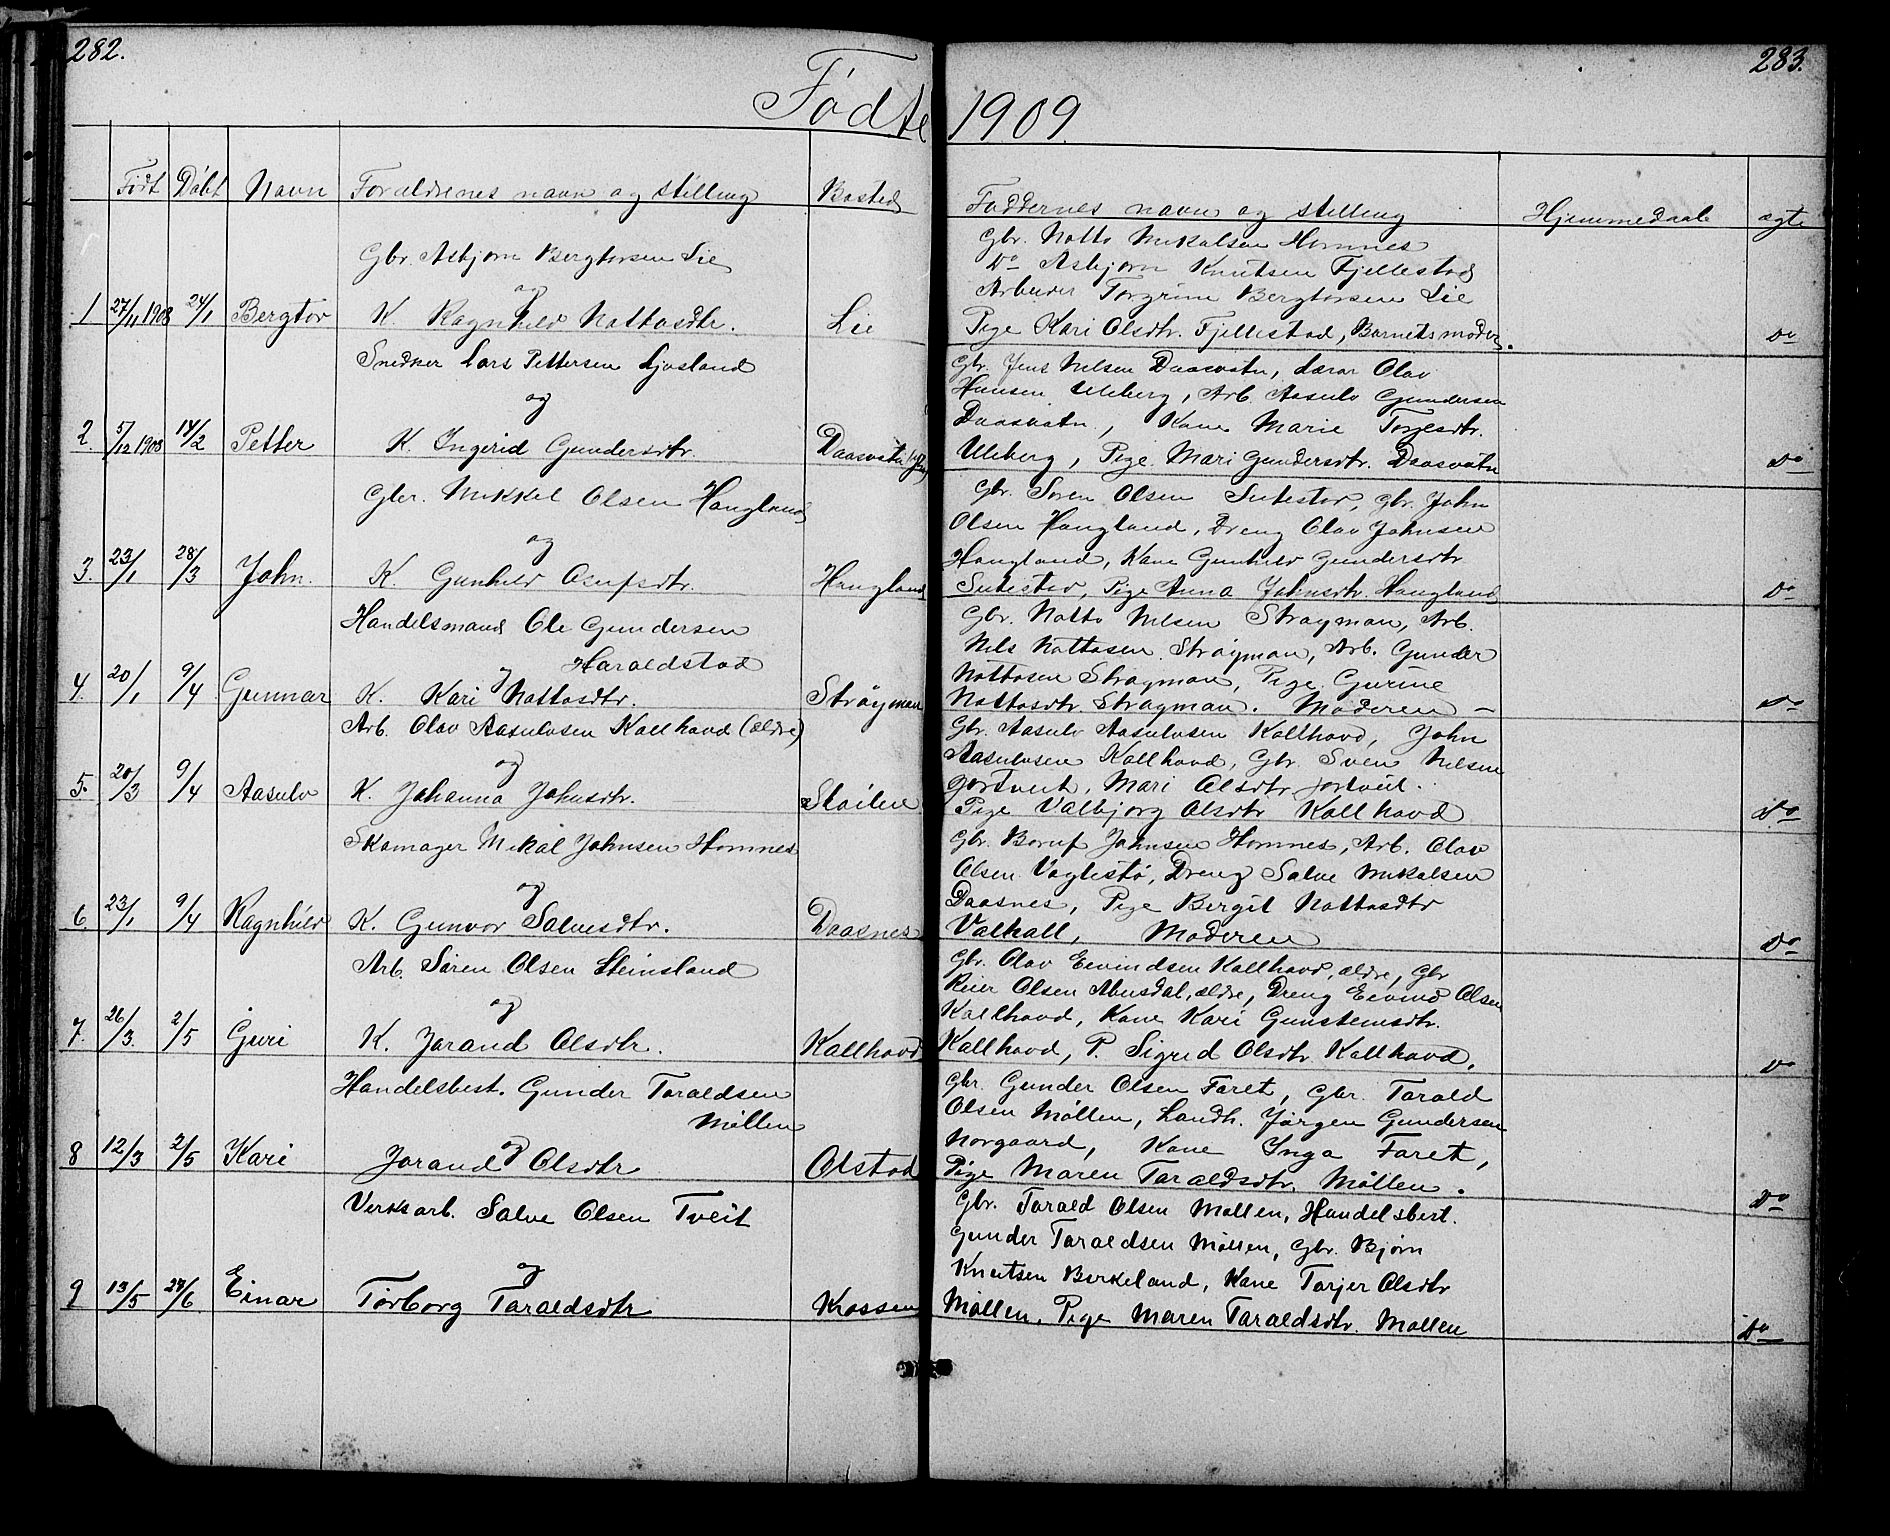 282.
Fødte
Født Døbt Navn Forældrenes navn og stilling Bosted
Gbr. Asbjørn Bergtorsen Lie
og
1 27/11 1908 24/1 Bergtor K. Ragnhild Nottosdtr. Lie
Snedker Lars Pettersen Ljosland
og
2 5/12 1908 14/2 Petter K. Ingerid Gundersdtr. Daasvatn
Gbr. Mikkel Olsen Haugland
og
3. 23/1 28/3 John. K. Gunhild Asufsdtr. Haugland
Handelsmand Ole Gundersen
Haraldstad
og
4. 20/1 9/4 Gunnar K. Kari Nottosdtr. Strøyman
Arb. Olav Aasulvsen Kallhovd (ældre)
og
5. 20/3 9/4 Aasulv K. Johanna Johnsdtr. Støilen
Skomager Mikal Johnsen Homnes
og
6. 23/1 9/4 Ragnhild K. Gunvor Salvesdtr. Daasnes
Arb. Søren Olsen Steinsland
og
7. 26/3. 2/5 Guri K. Jorand Olsdtr. Kallhovd
Handelsbest. Gunder Taraldsen
Møllen
og
8 12/3 2/5 Kari Jorand Olsdtr Olstad
Verksarb. Salve Olsen Tveit
og
9 13/5 24/6 Einar Torborg Taraldsdtr Krossen
283.
1909.
Faddernes navn og stilling Hjemmedaab ægte
Gbr. Notto Mikalsen Homnes
Do Asbjørn Knutsen Fjellestad
Arbeider Torgrim Bergtorsen Lie
Pige Kari Olsdtr. Fjellestad, Barnets moder. Do
Gbr. Jens Nilsen Daasvatn, Lærer Olav
Hansen Uleberg, Arb. Aasulv Gundersen
Daasvatn, Kone Marie Torjesdtr.
Uleberg, Pige Mari Gundersdtr. Daasvatn Do
Gbr. Søren Olsen Sutestad, Gbr. John
Olsen Haugland, Dreng Olav Johnsen
Haugland, Kone Gunhild Gundersdtr
Sutestad, Pige Anna Johnsdtr. Haugland Do
Gbr. Notto Nilsen Strøyman, Arb.
Nils Nottosen Strøyman, Arb. Gunder
Nottosen Strøyman, Pige Gurine
Nottosdtr Strøyman. Moderen – Do
Gbr. Aasulv Aasulvsen Kallhovd, John
Aasulvsen Kallhovd, Gbr. Sven Nilsen
Jortveit, Mari Olsdtr Jortveit.
Pige Valbjorg Olsdtr Kallhovd Do
Gbr. Boruf Johnsen Homnes, Arb. Olav
Olsen Voglestø, Dreng Salve Mikalsen
Daasnes, Pige Bergit Nottosdtr
Valhall, Moderen Do
Gbr. Olav Eivindsen Kallhovd, ældre, Gbr
Reier Olsen Abusdal, ældre, Dreng Eivind Olsen
Kallhovd, Kone Kari Gunsteinsdtr.
Kallhovd, P. Sigrid Olsdtr. Kallhovd. Do
Gbr. Gunder Olsen Faret, Gbr. Tarald
Olsen Møllen, Landh. Jørgen Gundersen
Norgaard, Kone Inga Faret,
Pige Maren Taraldsdtr. Møllen. Do
Gbr. Tarald Olsen Møllen, Handelsbest.
Gunder Taraldsen Møllen, Gbr. Bjørn
Knutsen Birkeland, Kone Torjer Olsdtr
Møllen, Pige Maren Taraldsdtr. Møllen Do